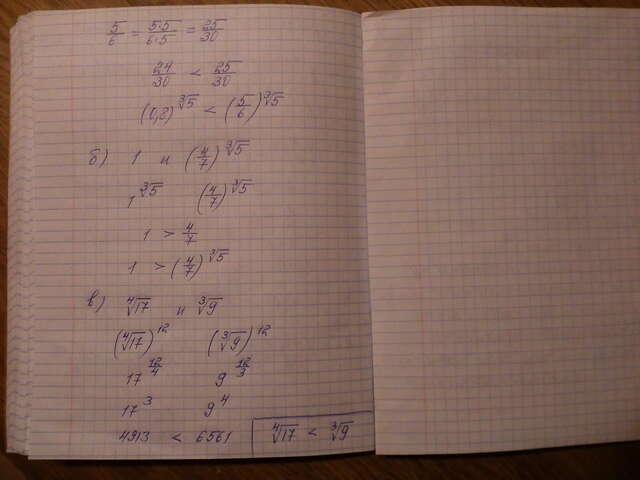 5/6 = 5·5/6·5 = 25/30
24/30 < 25/30
(0,8)^∛5 < (5/6)^∛5
б) 1 и (4/7)^∛5
1^∛5 (4/7)^∛5
1 > 4/7
1 > (4/7)^∛5
в) ∜17 и ∛9
(∜17)^12 (∛9)^12
17^12/4 9^12/3
17^3 9^4
4913 < 6561 ∜17 < ∛9